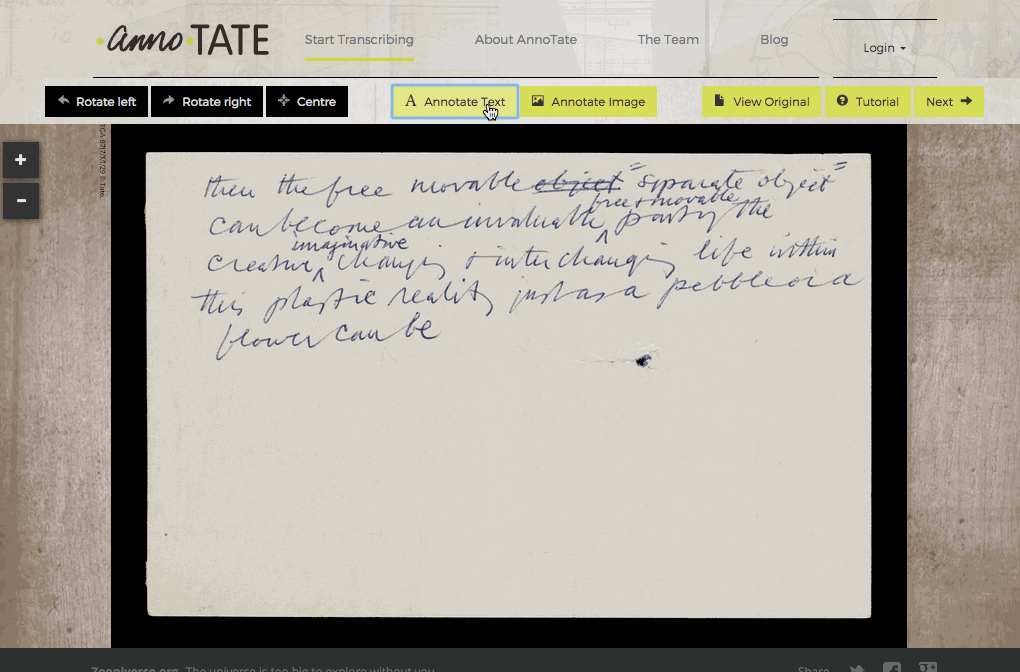 anno TATE
Start Transcribing
About AnnoTate
The Team
Blog
Login
Rotate left
Rotate right
Centre
A Annotate Text
Annotate Image
View Original
Tutorial
Next
TGA 877/7/3/1/29 © Tate
then the free movable object "separate object"
free + movable
can become an invaluable ^ part of the
imaginative
creative ^ changing + interchanging life within
this plastic reality just as a pebble or a
flower can be
Zooniverse.org The universe is too big to explore without you.
Share